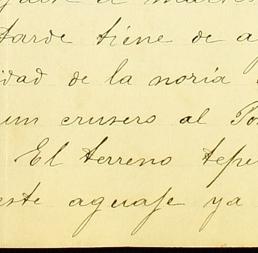 tarde tiene de a
idad de la noria
um crusero al Po
El terreno tepe
este aguaje ya